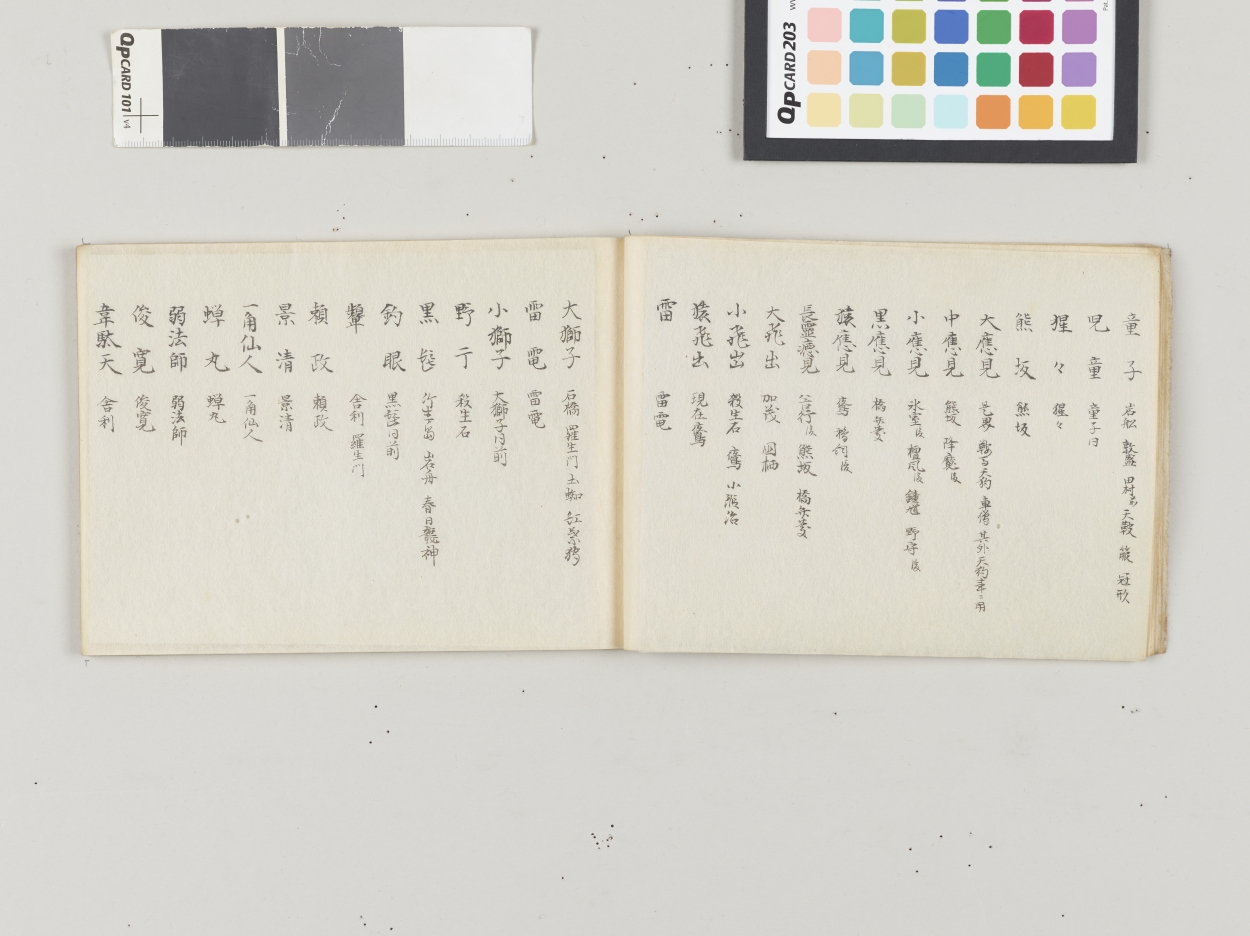 童子 岩舩 敦盛 田村 天鼓 籠 冠形
児童 童子同
猩々 猩々
熊坂 熊坂
大應見 是界 鞍馬天狗 車僧 其外天狗 用
中應見 熊坂 降魔後
小應見 氷室後 檀風後 鐘馗 野守後
黒應見 橋弁慶
猿應見 鵺 後
長靈應見 烏帽子折後 熊坂 橋弁慶
大飛出 加茂 国栖
小飛出 殺生石 鵺 小鍛冶
猿飛出 現在鵺
雷 雷電
大獅子 石橋 羅生門 土蜘 紅葉狩
雷電 雷電
小獅子 大獅子同前
野干 殺生石
黒髭 竹生島 岩舟 春日龍神
釣眼 黒髭同前
顰 舎利 羅生門
頼政 頼政
景清 景清
一角仙人 一角仙人
蝉丸 蝉丸
弱法師 弱法師
俊寛 俊寛
韋駄天 舎利
QPCARD 101 v4
QPCARD 203